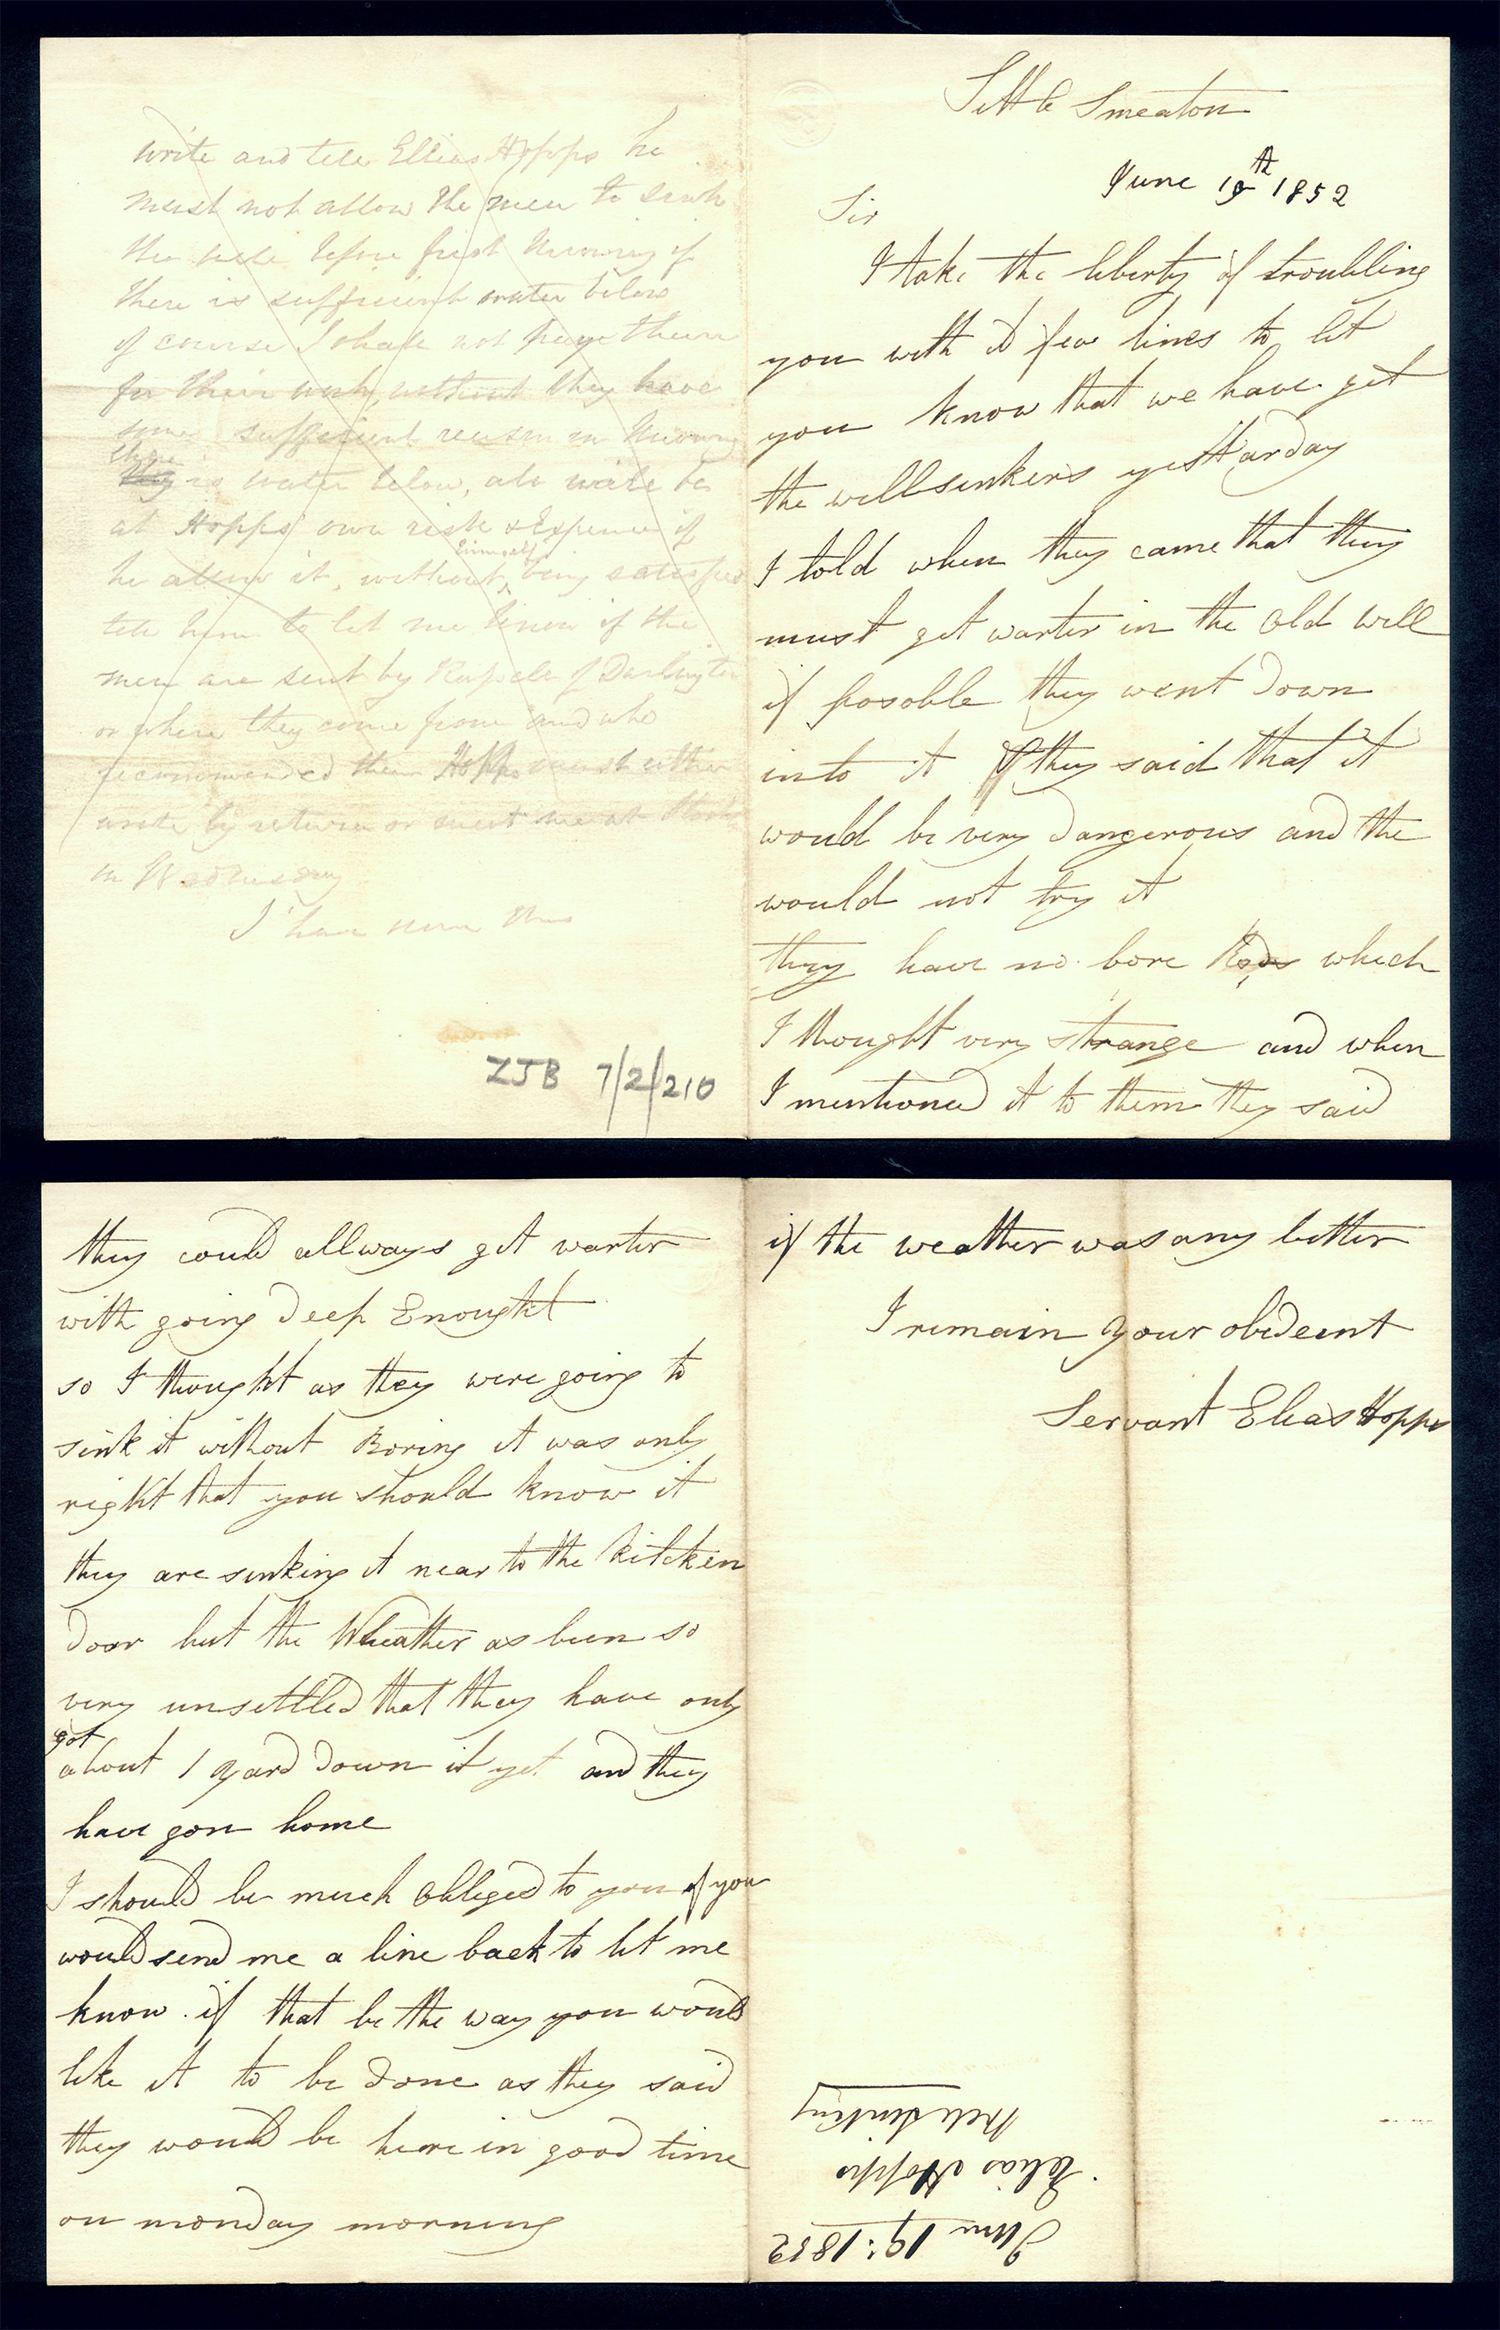 Little Smeaton
June 19th 1852
Sir
I take the liberty of troubling
you with a few lines to let
you know that we have get
the wellsinkers yesttarday
I told when they came that they
must get warter in the old well
if posoble they went down
into it & they said that it
would be very dangerous and the
would not try it
they have no bore Rods which
I thought very strange and when
I mentioned it to them they said
they could allways get warter
with going deep Enought
so I thought as they were going to
sink it without Boring it was only
right that you should know it
they are sinking it near to the kitcken
door but the Wheather as been so
very unsettled that they have only
got
about 1 yard down it yet and they
have gon home
I should be much obliged to you if you
would send me a line back to let me
know if that be the way you would
like it to be done as they said
they would be heare in good time
on monday morning
if the weather was any better
I remain your obideent
Servant Elias Hopps
June 19: 1852
Elias Hopps
Well Sinking
write and tell Ellias Hopps he
must not allow the men to sink
the well before first knowing if
there is sufficient water below
of course I shall not pay them
for their work, without they have
some sufficient reason in knowing
there
they is water below, also will be
at Hopps' own risk & Expence if
himself
he allow it, without, being satisfied
tell him to let me know if the
men are sent by of Darlington
or where they come from and who
recommended them Hopps must either
write by return or meet me at
on Wednesday
I have now the
ZJB 7/2/210